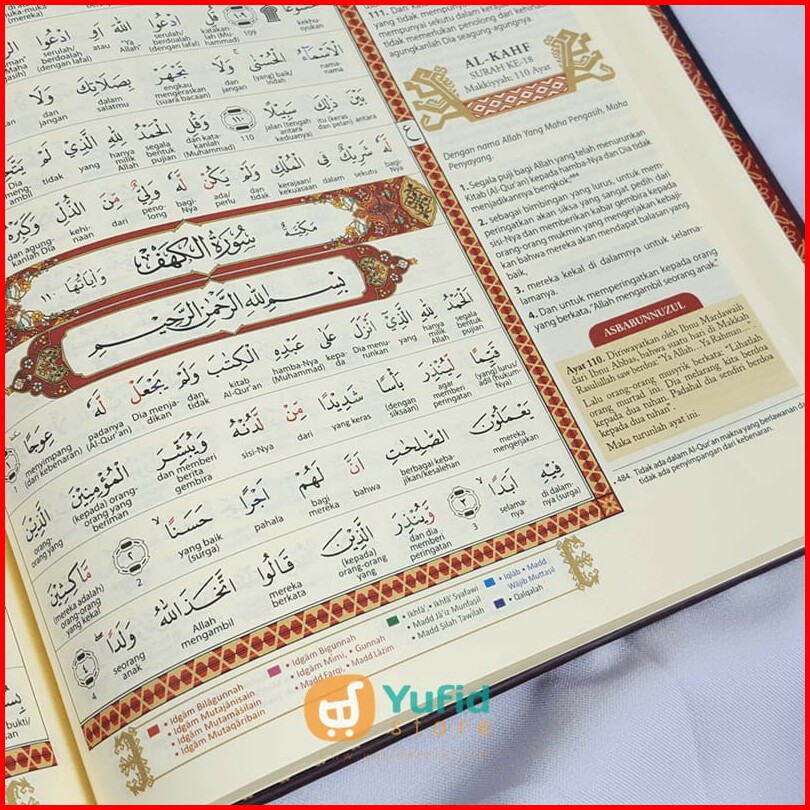 قُلِ ادْعُوا اللّٰهَ اَوِ ادْعُوا
109
الْاَسْمَاۤءُ الْحُسْنٰى وَلَا تَجْهَرْ بِصَلَاتِكَ وَلَا
nama-nama (yang) baik/indah dan jangan engkau mengeraskan (suara bacaan) dalam salatmu dan jangan
بَيْنَ ذٰلِكَ سَبِيْلًا ١١٠ وَقُلِ الْحَمْدُ لِلّٰهِ الَّذِيْ لَمْ
antara itu (keras dan pelan) jalan (tengah antara keduanya) 110 dan kata-kanlah (Muhammad) segala pujian hanya milik Allah yang tidak
لَّهٗ شَرِيْكٌ فِى الْمُلْكِ وَلَمْ يَكُنْ لَّهٗ وَلِيٌّ مِّنَ الذُّلِّ وَكَبِّرْهُ
bagi-Nya sekutu dalam kerajaan/kekuasaan dan tidak ada/perlu bagi-Nya peno-long dari kehi-naan dan agung-kanlah Dia
مَكِّيَّة سُوْرَةُ الْكَهْفِ وَاٰيَاتُهَا ١١٠
بِسْمِ اللّٰهِ الرَّحْمٰنِ الرَّحِيْمِ
اَلْحَمْدُ لِلّٰهِ الَّذِيْٓ اَنْزَلَ عَلٰى عَبْدِهِ الْكِتٰبَ وَلَمْ يَجْعَلْ لَّهٗ عِوَجًا
segala bentuk pujian hanya milik Allah yang Dia menu-runkan kepa-da hamba-Nya (Muhammad) kitab Al-Qur'an dan tidak Dia menja-dikan padanya (Al-Qur'an) menyimpang (dari kebenaran) 1
قَيِّمًا لِّيُنْذِرَ بَأْسًا شَدِيْدًا مِّنْ لَّدُنْهُ وَيُبَشِّرَ الْمُؤْمِنِيْنَ الَّذِيْنَ
(yang) lurus/adil (hukum-Nya) agar memberi peringatan (dengan siksaan) yang keras dari sisi-Nya dan memberi berita gembira (kepada) orang-orang yang beriman orang-orang yang
يَعْمَلُوْنَ الصّٰلِحٰتِ اَنَّ لَهُمْ اَجْرًا حَسَنًا ٢ مَّاكِثِيْنَ
mereka mengerjakan berbagai keba-jikan/kesalehan bahwa bagi mereka pahala yang baik (surga) 2 (mereka adalah) orang-orang yang kekal
فِيْهِ اَبَدًا ٣ وَّيُنْذِرَ الَّذِيْنَ قَالُوا اتَّخَذَ اللّٰهُ وَلَدًا ٤
di dalam-nya (surga) selama-nya 3 dan dia memberi peringatan (kepada) orang-orang yang mereka berkata Allah mengambil seorang anak 4
• Idgām Bilāgunnah
• Idgām Mutajānisain
• Idgām Mutamāṡilain
• Idgām Mutaqāribain
• Idgām Bigunnah
• Idgām Mimi, • Gunnah
• Madd Farqi, • Madd Lāzim
• Ikhfā', • Ikhfā' Syafawi
• Madd Jā'iz Munfaṣil
• Madd Ṣilah Ṭawīlah
• Iqlāb • Madd Wājib Muttaṣil
• Qalqalah
mempunyai sekutu dalam kerajaan-
tidak memerlukan penolong dari kehinaan
agungkanlah Dia seagung-agungnya.
AL-KAHF
SURAH KE-18
Makkiyyah: 110 Ayat
Dengan nama Allah Yang Maha Pengasih, Maha
Penyayang.
1. Segala puji bagi Allah yang telah menurunkan
Kitab (Al-Qur'an) kepada hamba-Nya dan Dia tidak
menjadikannya bengkok,⁴⁸⁴
2. sebagai bimbingan yang lurus, untuk mem-
peringatkan akan siksa yang sangat pedih dari
sisi-Nya dan memberikan kabar gembira kepada
orang-orang mukmin yang mengerjakan kebaji-
kan bahwa mereka akan mendapat balasan yang
baik,
3. mereka kekal di dalamnya untuk selama-
lamanya.
4. Dan untuk memperingatkan kepada orang
yang berkata, "Allah mengambil seorang anak."
ASBABUNNUZUL
Ayat 110. Diriwayatkan oleh Ibnu Mardawaih
dari Ibnu Abbas, bahwa suatu hari di Makkah
Rasulullah saw berdoa: "Ya Allah... Ya Rahman..."
Lalu orang-orang musyrik berkata: "Lihatlah
orang murtad ini. Dia melarang kita berdoa
kepada dua tuhan. Padahal dia sendiri berdoa
kepada dua tuhan".
Maka turunlah ayat ini.
484. Tidak ada dalam Al-Qur'an makna yang berlawanan
tidak ada penyimpangan dari kebenaran.
Yufid
store